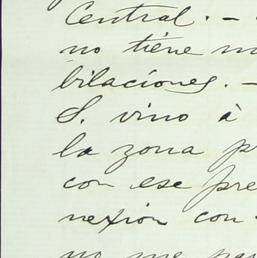 Central. –
no tiene
bilaciones. –
S. vino à
la zona
con ese
nexion con
no me